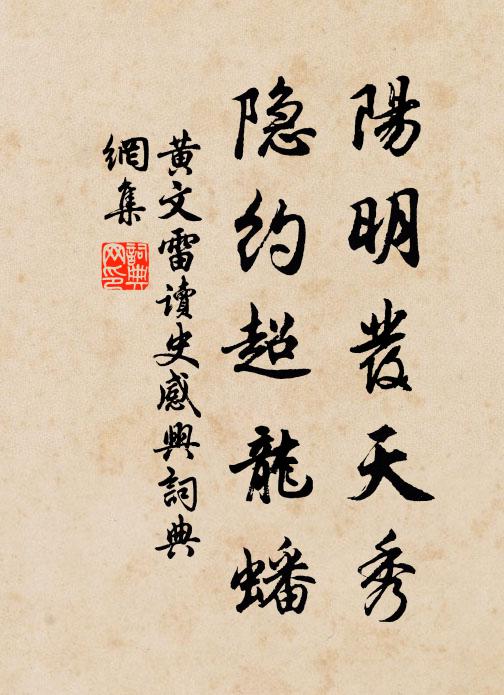 陽明發天秀
隐約超龍蟠
黄文雷讀史感興詞典
網集
詞典网印